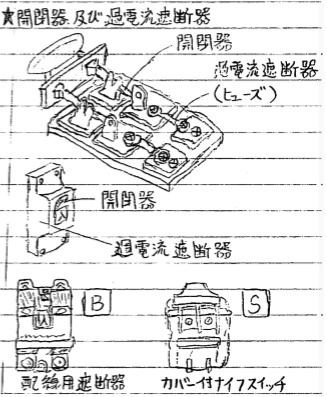 ★開閉器及び過電流遮断器
開閉器
過電流遮断器
(ヒューズ)
開閉器
過電流遮断器
B
S
配線用遮断器
カバー付ナイフスイッチ